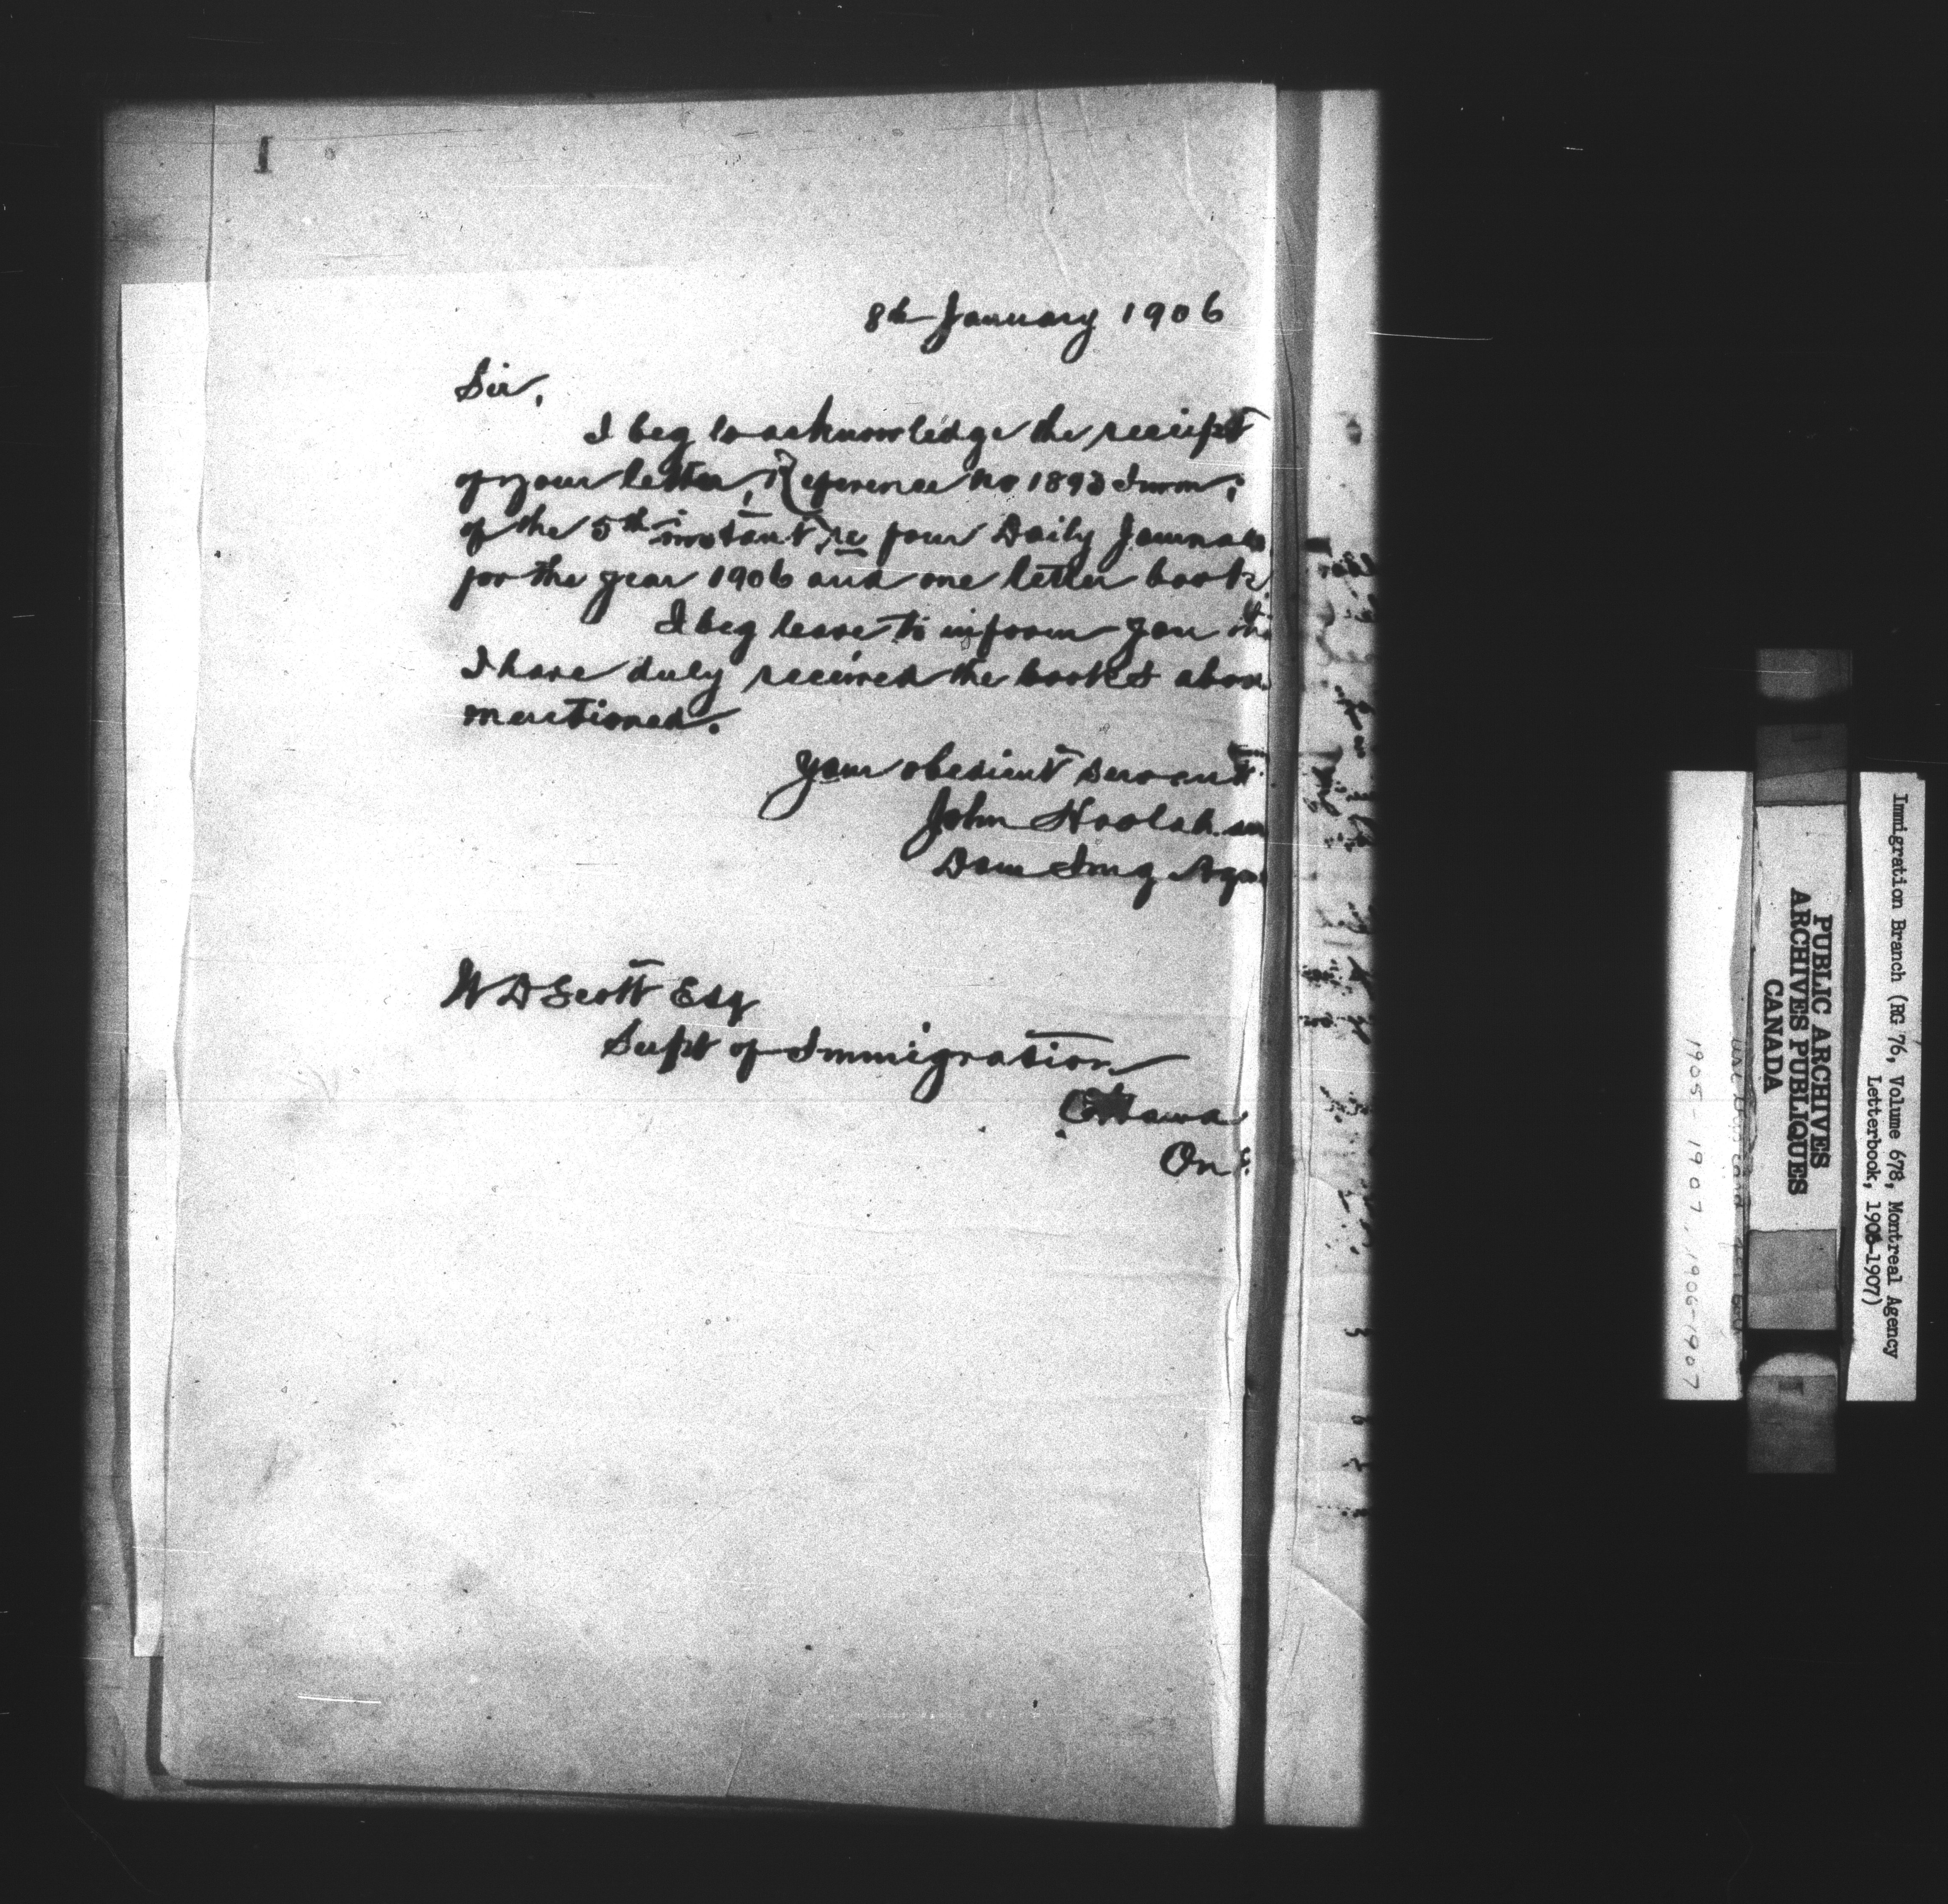 1
8th January 1906
Sir,
I beg to acknowledge the receipt
of your letter, Reference No 1893 Imm;
of the 5th instant, re four Daily Journals
for the year 1906 and one letter book
I beg leave to inform you
I have duly received the books above
mentioned.
Your obedient servant
John Hoolahan
Dom Img Agen
W D Scott Esq
Supt of Immigration
Ottawa
Ont.
Immigration Branch (RG 76, Volume 678, Montreal Agency
Letterbook, 1906-1907)
PUBLIC ARCHIVES
ARCHIVES PUBLIQUES
CANADA
1905-1907, 1906-1907